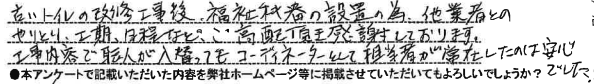 古いトイレの改修工事後、福祉機器の設置の為、他業者との
やりとり、工期、日程など、ご高配頂き感謝しております。
工事内容で職人が入替っても、コーディネーターとして担当者が常在したのは安心
でした。
●本アンケートで記載いただいた内容を弊社ホームページ等に掲載させていただいてもよろしいでしょうか?